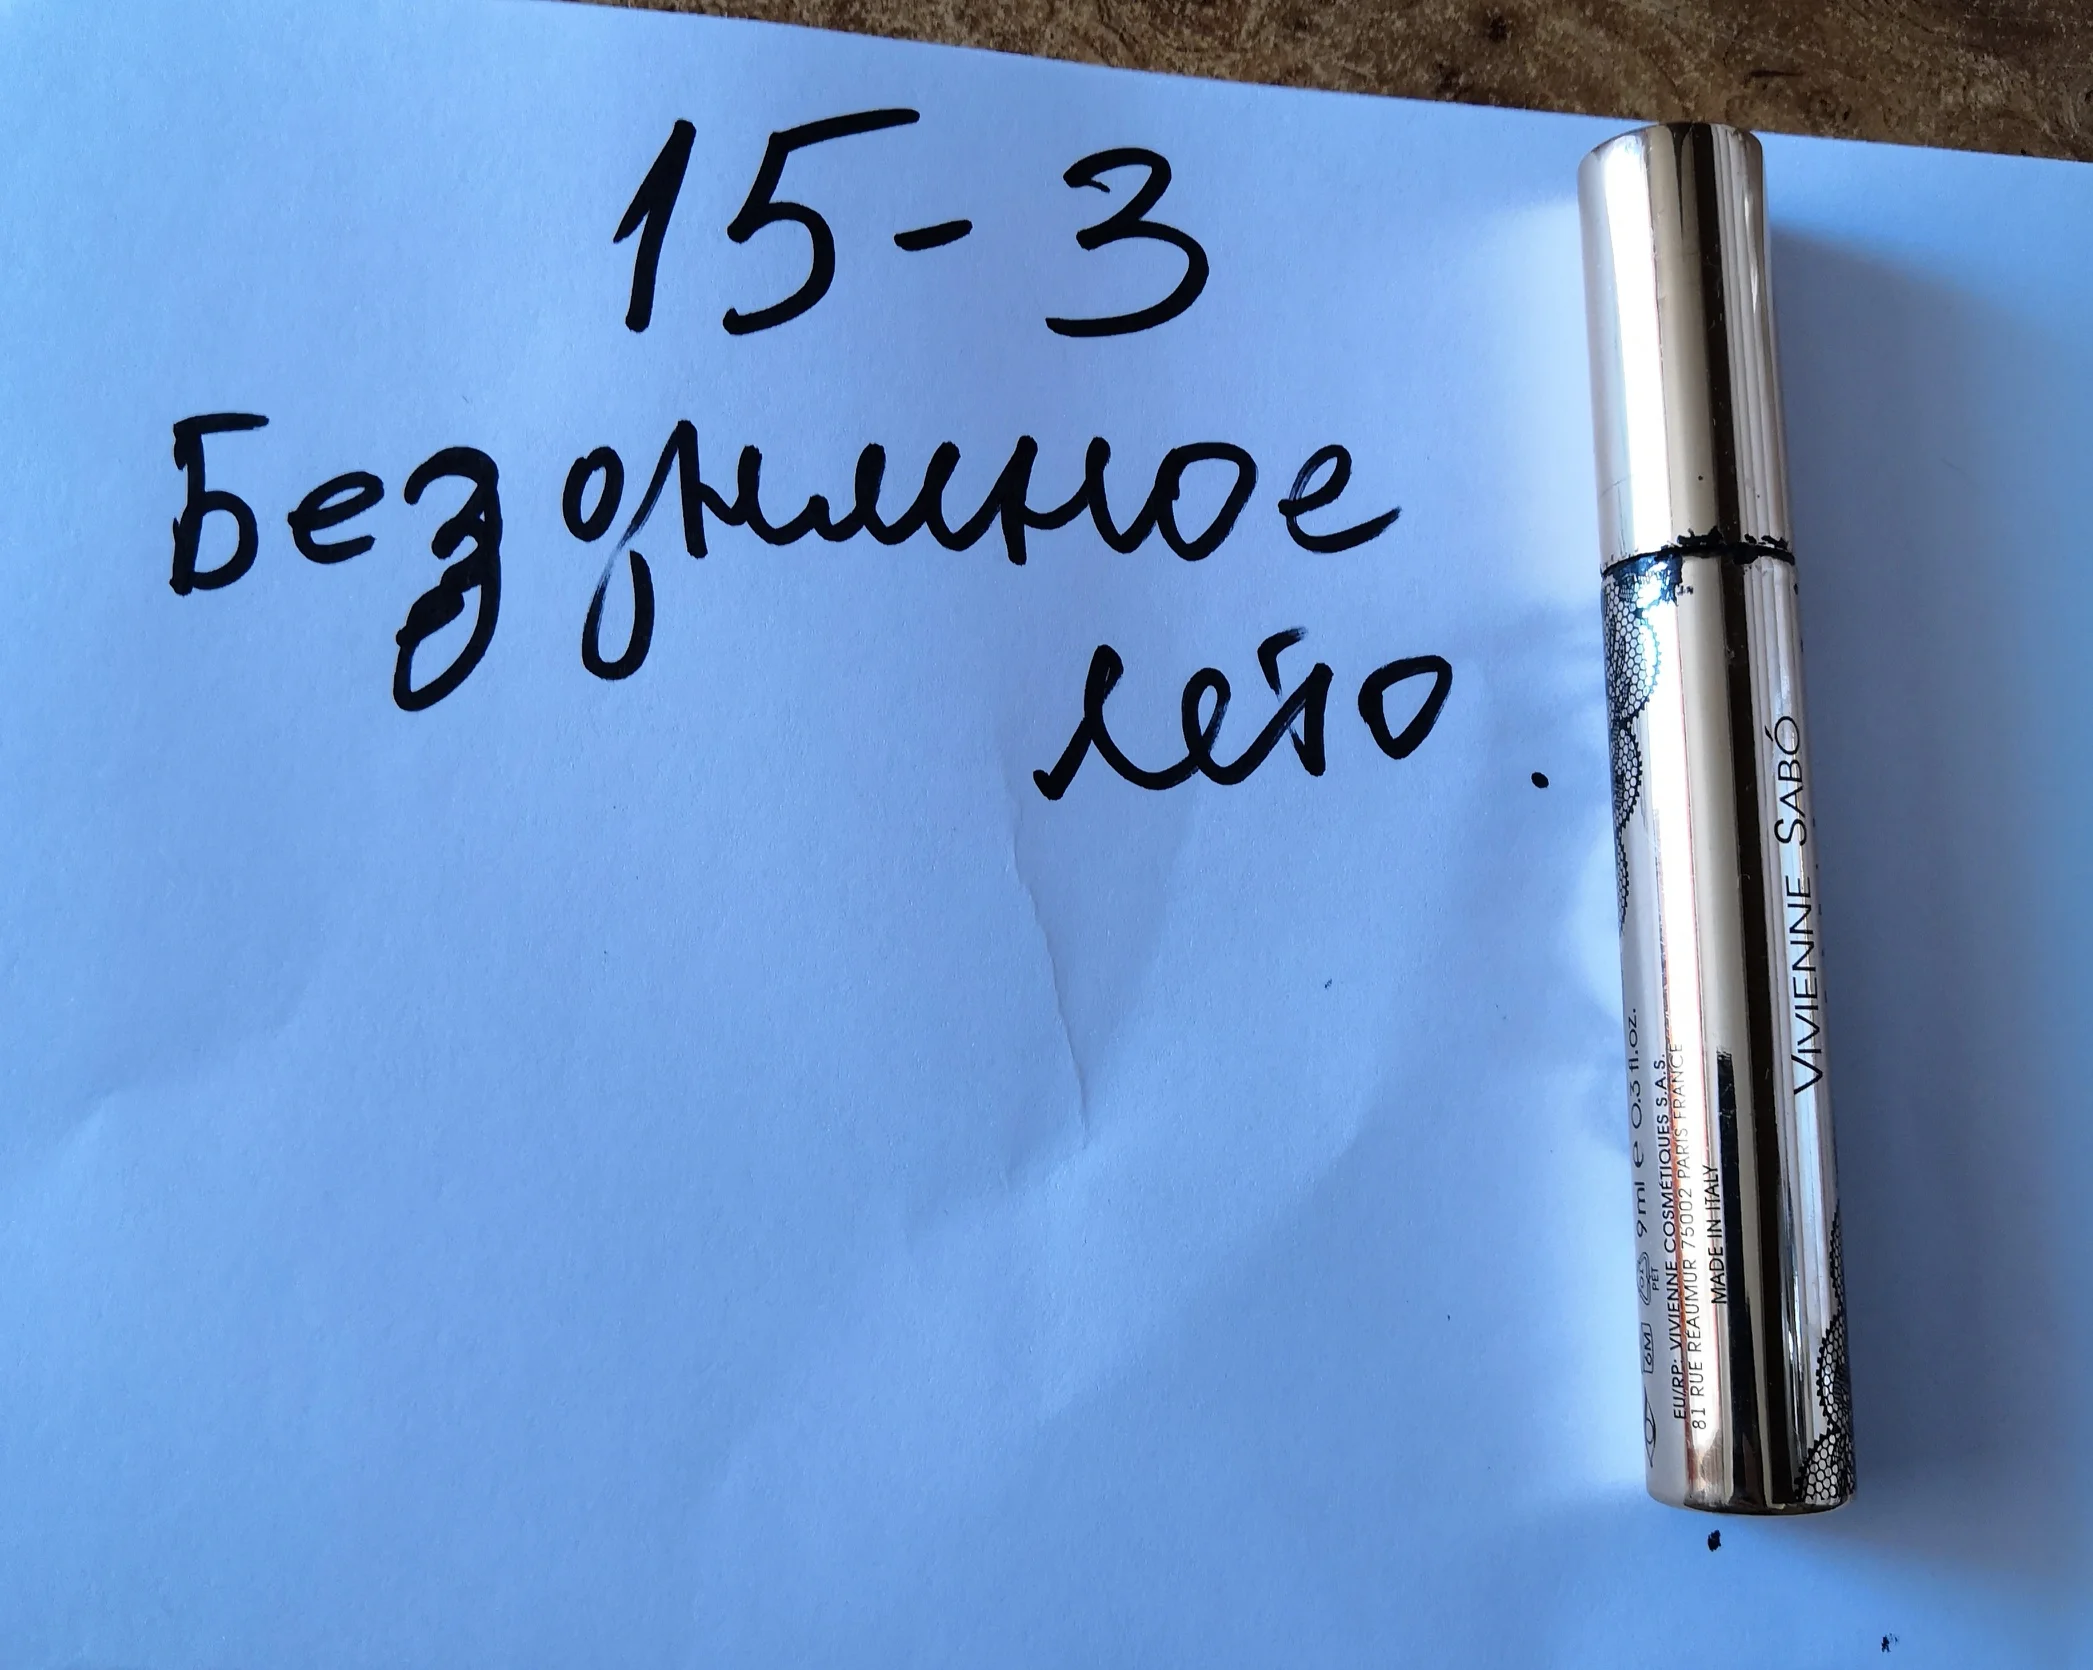 15-3
Бездымное
лето.
VIVIENNE SABÓ
6M PET 9ml e 0.3 fl.oz.
EU/RP: VIVIENNE COSMÉTIQUES S.A.S.
81 RUE RÉAUMUR 75002 PARIS FRANCE
MADE IN ITALY